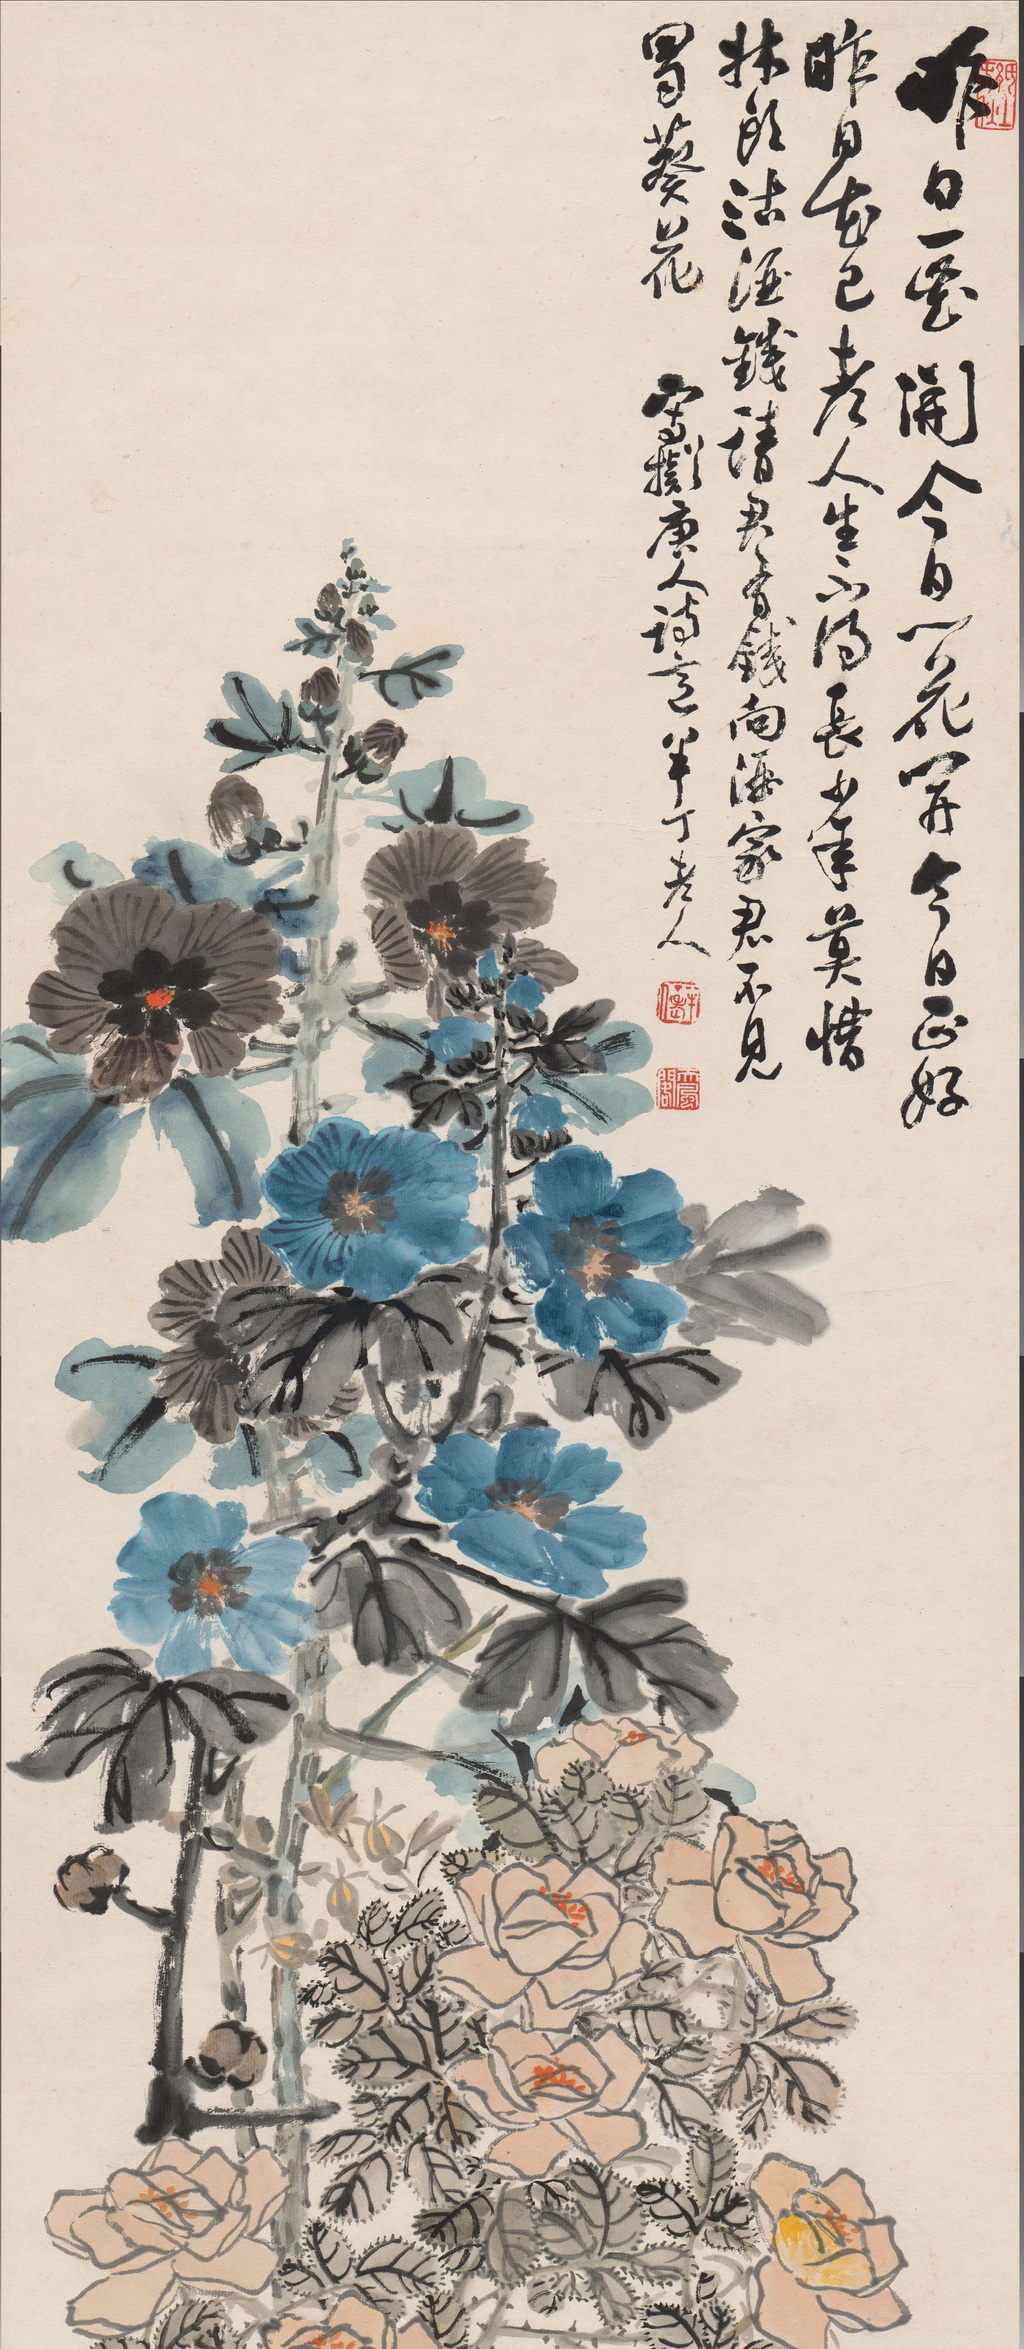 昨日一花開今日一花開今日正好
昨日花已老人生不得長少年莫惜
牀頭沽酒錢請君有錢向酒家君不見
蜀葵花 寫擬唐人詩意 半丁老人